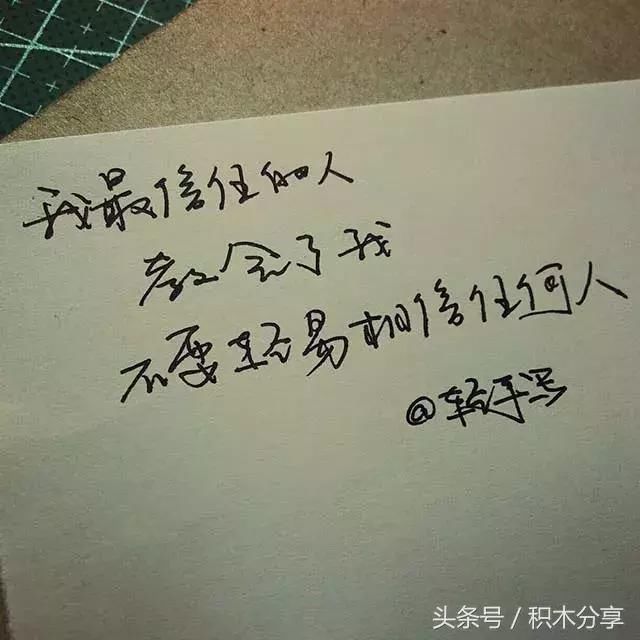 我最信任的人
教会了我
不要轻易相信任何人
@轻手写
头条号 / 积木分享